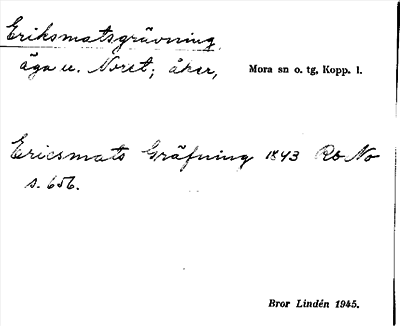 Eriksmatsgrävning
äga u. Noret; åker, Mora sn o. tg, Kopp. l.
Ericsmats Gräfning 1843 Rb No
s. 656.
Bror Lindén 1945.